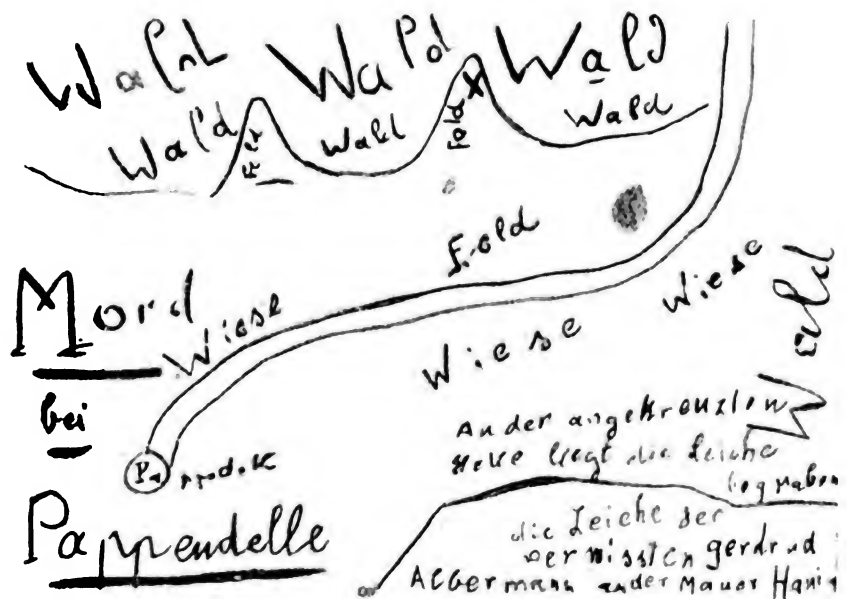 Wald Wald
Wald Wald Wald
Feld Feld
Feld
Mord
Wiese Wiese Wiese
Wald
bei
Pa
Pappendelle
An der angekreuzten
Stelle liegt die Leiche
begraben
die Leiche der
vermissten gerdrud
Albermann an der Mauer Hani